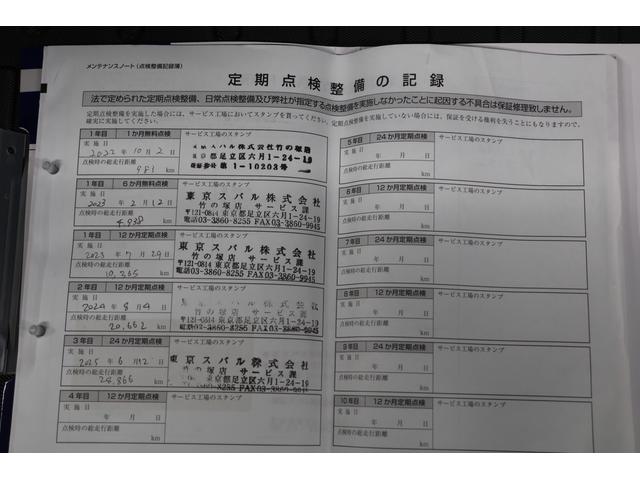 メンテナンスノート(点検整備記録簿)
定期点検整備の記録
法で定められた定期点検整備、日常点検整備及び弊社が指定する点検整備を実施しなかったことに起因する不具合は保証修理致しません。
定期点検整備を実施した場合には、サービス工場においてスタンプを買ってください。定期点検整備を実施していない場合には、保証を受ける権利を失うことにもなりますので、
確実に実施してください。
1年目 1か月無料点検 サービス工場のスタンプ
実施日
2022年10月2日
点検時の総走行距離
981 km
東京スバル株式会社竹の塚店
東京都足立区六月1-24-19
第1-10203号
1年目 6か月無料点検 サービス工場のスタンプ
実施日
2023年2月12日
点検時の総走行距離
4,938 km
東京スバル株式会社
竹の塚店 サービス課
〒121-0814 東京都足立区六月1-24-19
電話03-3860-8255 FAX03-3860-9945
1年目 12か月定期点検 サービス工場のスタンプ
実施日
2023年7月29日
点検時の総走行距離
10,265 km
東京スバル株式会社
竹の塚店 サービス課
〒121-0814 東京都足立区六月1-24-19
電話03-3860-8255 FAX03-3860-9945
2年目 12か月定期点検 サービス工場のスタンプ
実施日
2024年8月4日
点検時の総走行距離
20,662 km
東京スバル株式会社
竹の塚店 サービス課
〒121-0814 東京都足立区六月1-24-19
電話03-3860-8255 FAX03-3860-9945
3年目 24か月定期点検 サービス工場のスタンプ
実施日
2025年6月12日
点検時の総走行距離
24,866 km
東京スバル株式会社
竹の塚店 サービス課
東京都足立区六月1-24-19
3860-8255 FAX03-3860-99
4年目 12か月定期点検 サービス工場のスタンプ
実施日
年 月 日
点検時の総走行距離
km
5年目 24か月定期点検 サービス工場のスタンプ
実施日
年 月 日
点検時の総走行距離
km
6年目 12か月定期点検 サービス工場のスタンプ
実施日
年 月 日
点検時の総走行距離
km
7年目 24か月定期点検 サービス工場のスタンプ
実施日
年 月 日
点検時の総走行距離
km
8年目 12か月定期点検 サービス工場のスタンプ
実施日
年 月 日
点検時の総走行距離
km
9年目 24か月定期点検 サービス工場のスタンプ
実施日
年 月 日
点検時の総走行距離
km
10年目 12か月定期点検 サービス工場のスタンプ
実施日
年 月 日
点検時の総走行距離
km